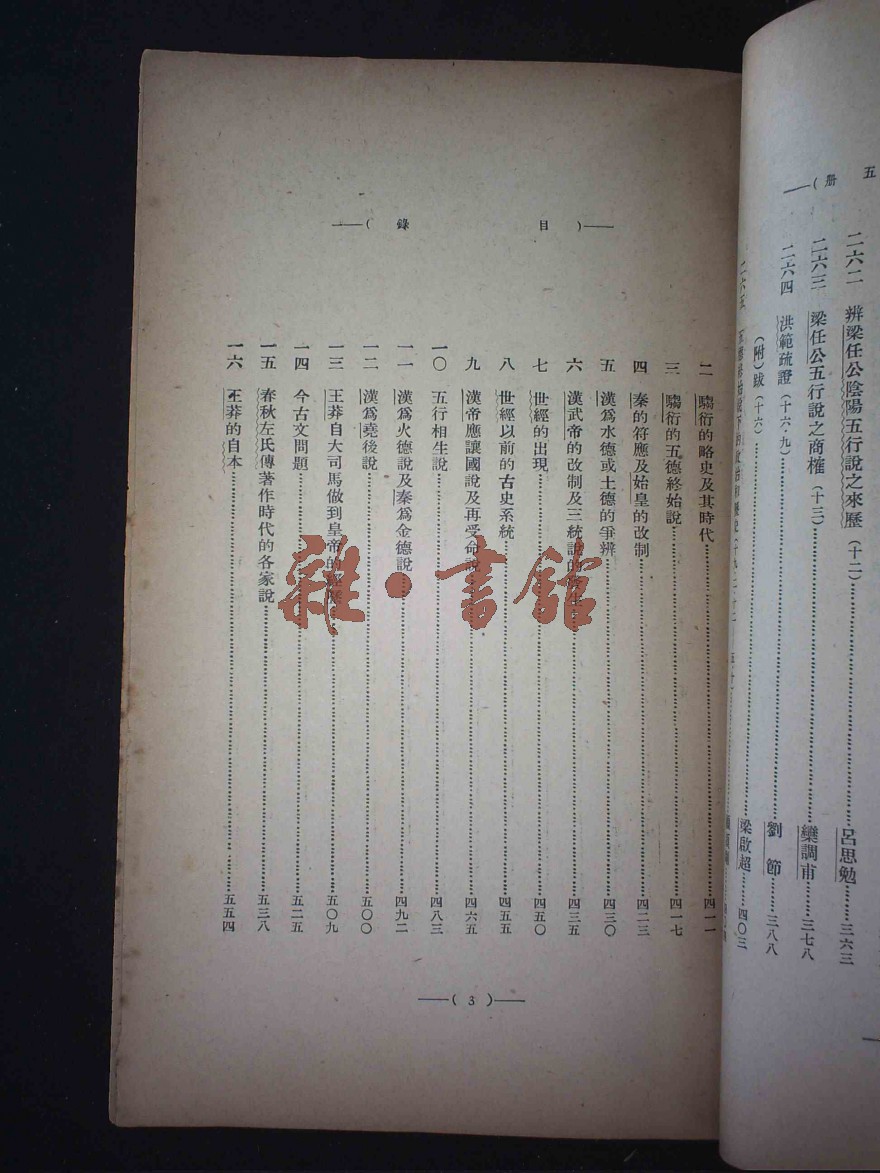 五
册
二六二 辨梁任公陰陽五行說之來歷（十二）………呂思勉………三六三
二六三 梁任公五行說之商榷（十三）………欒調甫………三七八
二六四 洪範疏證（十六·九）………劉節………三八八
（附）跋（十六）………梁啟超………四〇三
二六五
目錄
二 騶衍的略史及其時代………四一一
三 騶衍的五德終始說………四一七
四 秦的符應及始皇的改制………四二三
五 漢爲水德或土德的爭辨………四三〇
六 漢武帝的改制及三統說的………四三五
七 世經的出現………四五〇
八 世經以前的古史系統………四五五
九 漢帝應讓國說及再受命說………四六五
一〇 五行相生說………四八三
一一 漢爲火德說及秦爲金德說………四九二
一二 漢爲堯後說………五〇〇
一三 王莽自大司馬做到皇帝的經歷………五〇九
一四 今古文問題………五二五
一五 春秋左氏傳著作時代的各家說………五三八
一六 王莽的自本………五五四
（3）
雜·書館